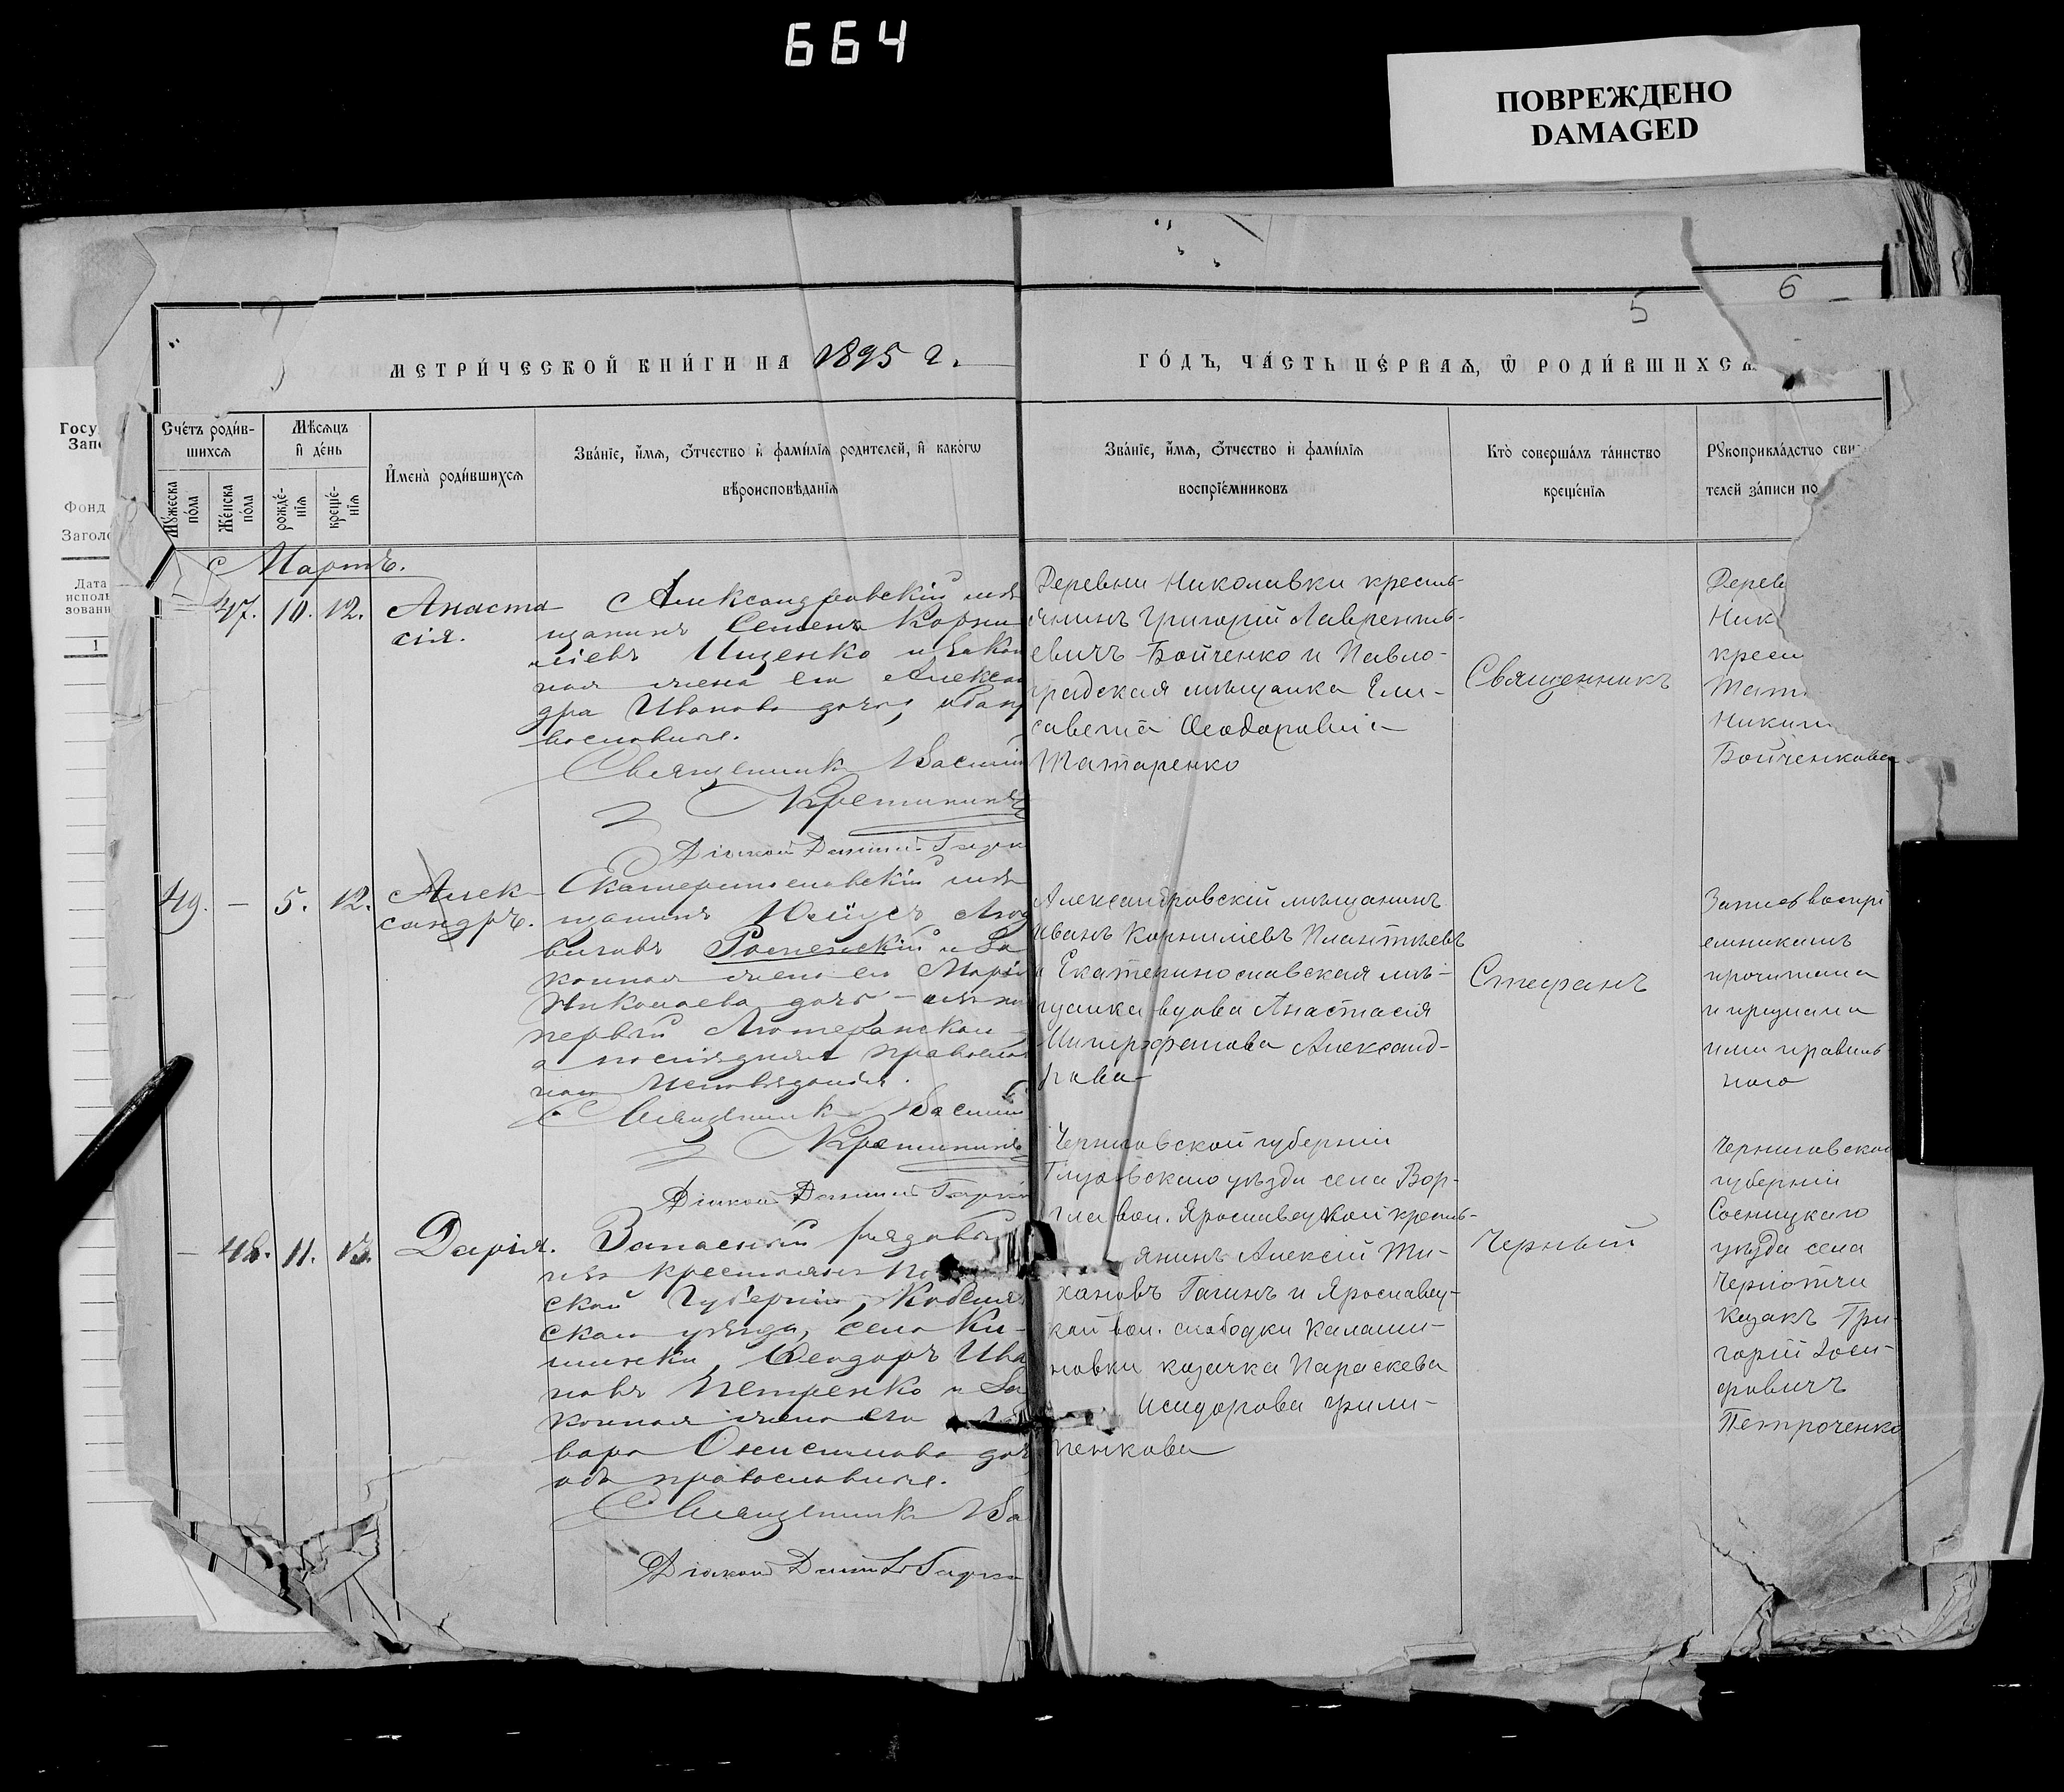 664
ПОВРЕЖДЕНО
DAMAGED
6
5
МЕТРИ́ЧЕСКОЙ КНИ́ГИ НА 1895 г.
ГО́ДЪ, ЧА́СТЬ ПЕ́РВАѦ, Ѿ РОДИ́ВШИХСѦ
Госу
Запо
Фонд
Заголо
Дата
исполь
зовани
1
Счéтъ роди́в-
шихсѧ
Мꙋ́жеска
по́ла
Же́нска
по́ла
Мѣ́сѧцъ
и҆ де́нь
рожде́-
нїѧ
креще́-
нїѧ
И҆мена̀ роди́вшихсѧ
Зва́нїе, и҆́мѧ, ѻ҆́тчество и҆ фами́лїѧ родителей, и҆ како́гѡ
вѣроисповѣ́данїѧ
Зва́нїе, и҆́мѧ, ѻ҆́тчество и҆ фами́лїѧ
воспрїе́мниковъ
Кто̀ соверша́лъ та́инство
креще́нїѧ
Рꙋкоприкла́дство сви
телей за́писи по
Мартъ.
47. 10. 12. Анаста
сія.
Александровскій мѣ
щанинъ Семенъ Корни
ліевъ Ищенко и закон
ная жена его Алексан
дра Иванова дочь, оба пр
вославные.
Священникъ Василій
Кретининъ
Діаконъ
Деревни Николавки кресть-
янинъ Григорій Лавренть-
евичъ Бойченко и Павло-
градская мѣщанка Ели-
савета Ѳеодоровна
Татаренко
Священникъ
Дерев
Ник
крест
Бойченкова
49. — 5. 12. Алек-
сандръ.
Екатеринославскій мѣ
щанинъ Юліусъ Люд
виговъ и за
конная жена его Марія
Николаева дочь
первый Лютеранскаго
а послѣдняя православ
наго исповѣданія.
Священникъ Василій
Кретининъ
Діаконъ
Александровскій мѣщанинъ
Иванъ Корниліевъ
и Екатеринославская мѣ-
щанка вдова Анастасія
Александ-
рова
Стефанъ
Запись воспрі
емникамъ
прочитана
и признана
ими правиль
ною
— 48. 11. 13. Дарія.
Запасный рядовой
изъ крестьянъ По
ской Губерніи, Кобеляк
скаго уѣзда, села Ки-
шинки, Ѳеодоръ Ива
новъ Петренко и за
конная жена его
вара Онисимова доч
оба православные.
Священникъ Ва
Діаконъ
Черниговской губерніи
Глуховскаго уѣзда села Вор-
гла вол. Ярославецкой кресть-
янинъ Алексій Ти-
хановъ Гагинъ и Ярославец-
кой вол. слободки Калаши-
новки казачка Параскева
Исидорова
пенкова
Черный
Черниговской
губерніи
Сосницкаго
уѣзда села
Казакъ Гри-
горій Іоси-
фовичъ
Петроченко